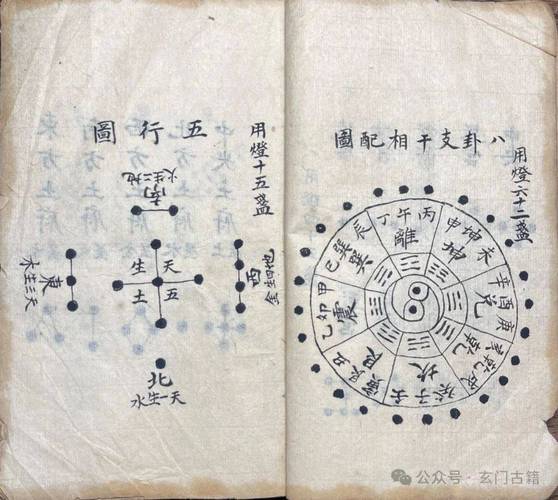 八卦支干相配圖
用燈六十二盞
丙午丁
離
未坤申
坤
庚酉辛
兌
戌乾亥
乾
壬子癸
坎
丑艮寅
艮
甲卯乙
震
辰巽巳
巽
五行圖
用燈十五盞
南
地二生火
東
天三生木
天五生土
西
地四生金
北
天一生水
公众号·玄门古籍